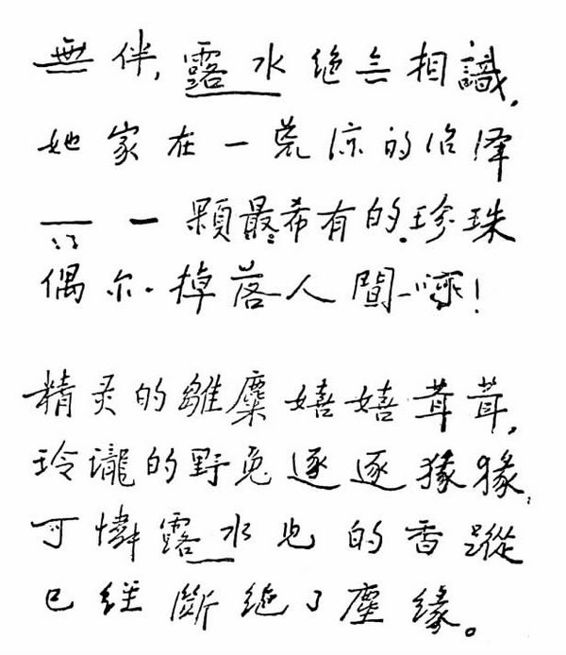 無伴，露水绝無相識，
她家在一荒涼的沼澤
—— 一顆最希有的珍珠
偶尔掉落人間！
精灵的雛麋嬉嬉茸茸，
玲瓏的野兔逐逐猭猭，
可憐露水也的香蹤
已經斷絕了塵緣。